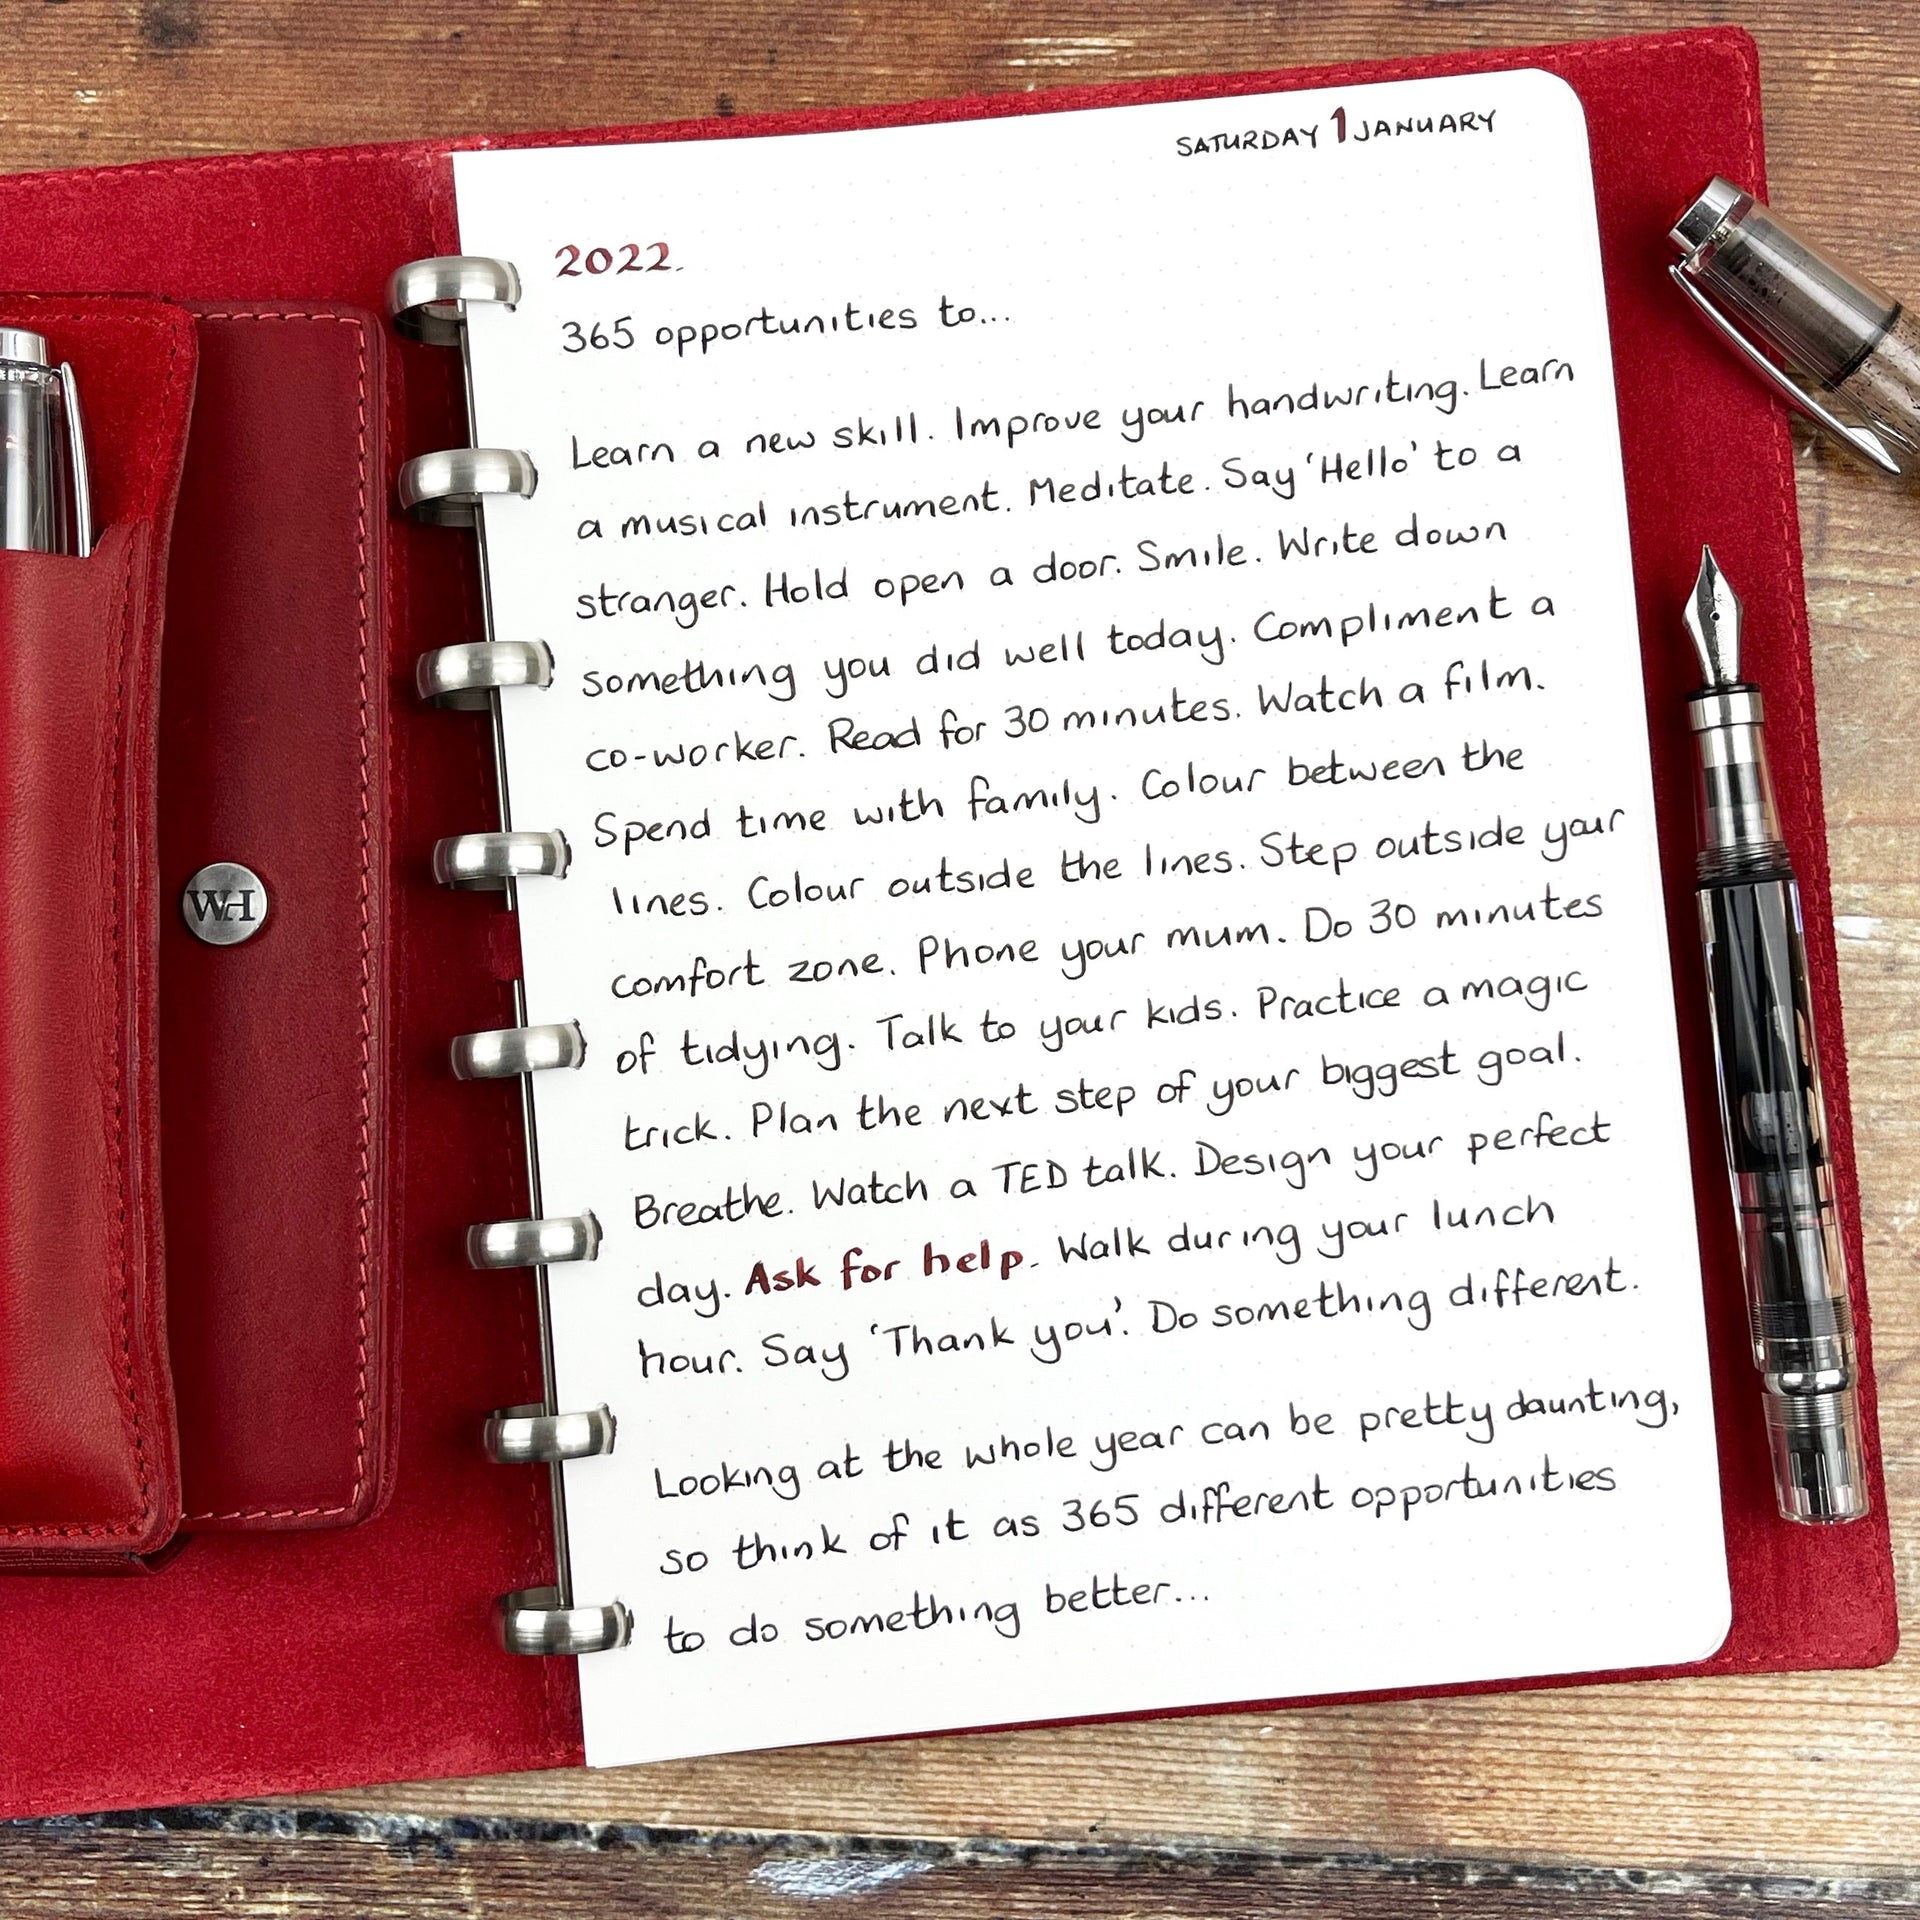 SATURDAY 1 JANUARY
2022.
365 opportunities to...
Learn a new skill. Improve your handwriting. Learn
a musical instrument. Meditate. Say 'Hello' to a
stranger. Hold open a door. Smile. Write down
something you did well today. Compliment a
co-worker. Read for 30 minutes. Watch a film.
Spend time with family. Colour between the
lines. Colour outside the lines. Step outside your
comfort zone. Phone your mum. Do 30 minutes
of tidying. Talk to your kids. Practice a magic
trick. Plan the next step of your biggest goal.
Breathe. Watch a TED talk. Design your perfect
day. Ask for help. Walk during your lunch
hour. Say 'Thank you'. Do something different.
Looking at the whole year can be pretty daunting,
so think of it as 365 different opportunities
to do something better...
WH